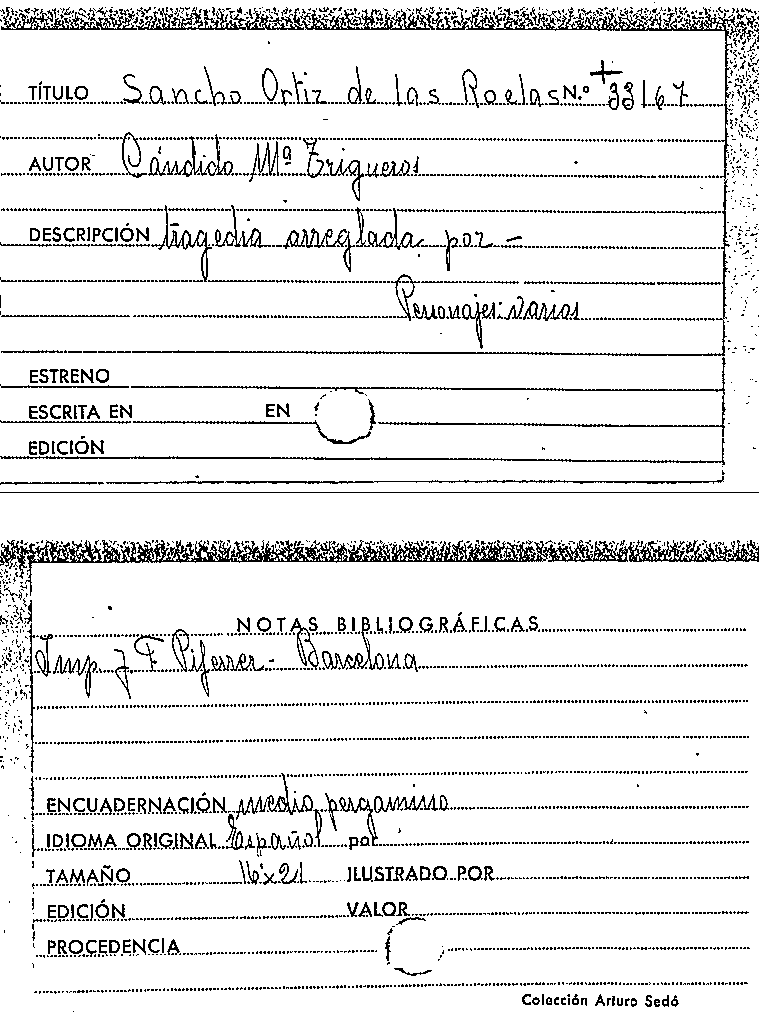 TÍTULO Sancho Ortiz de las Roelas N.º +33167
AUTOR Cándido Mª Trigueros
DESCRIPCIÓN tragedia arreglada por -
Personajes: varios
ESTRENO
ESCRITA EN EN
EDICIÓN
NOTAS BIBLIOGRÁFICAS
Imp J F Piferrer - Barcelona
ENCUADERNACIÓN medio pergamino
IDIOMA ORIGINAL Español por
TAMAÑO 16x21 ILUSTRADO POR
EDICIÓN VALOR
PROCEDENCIA
Colección Arturo Sedó